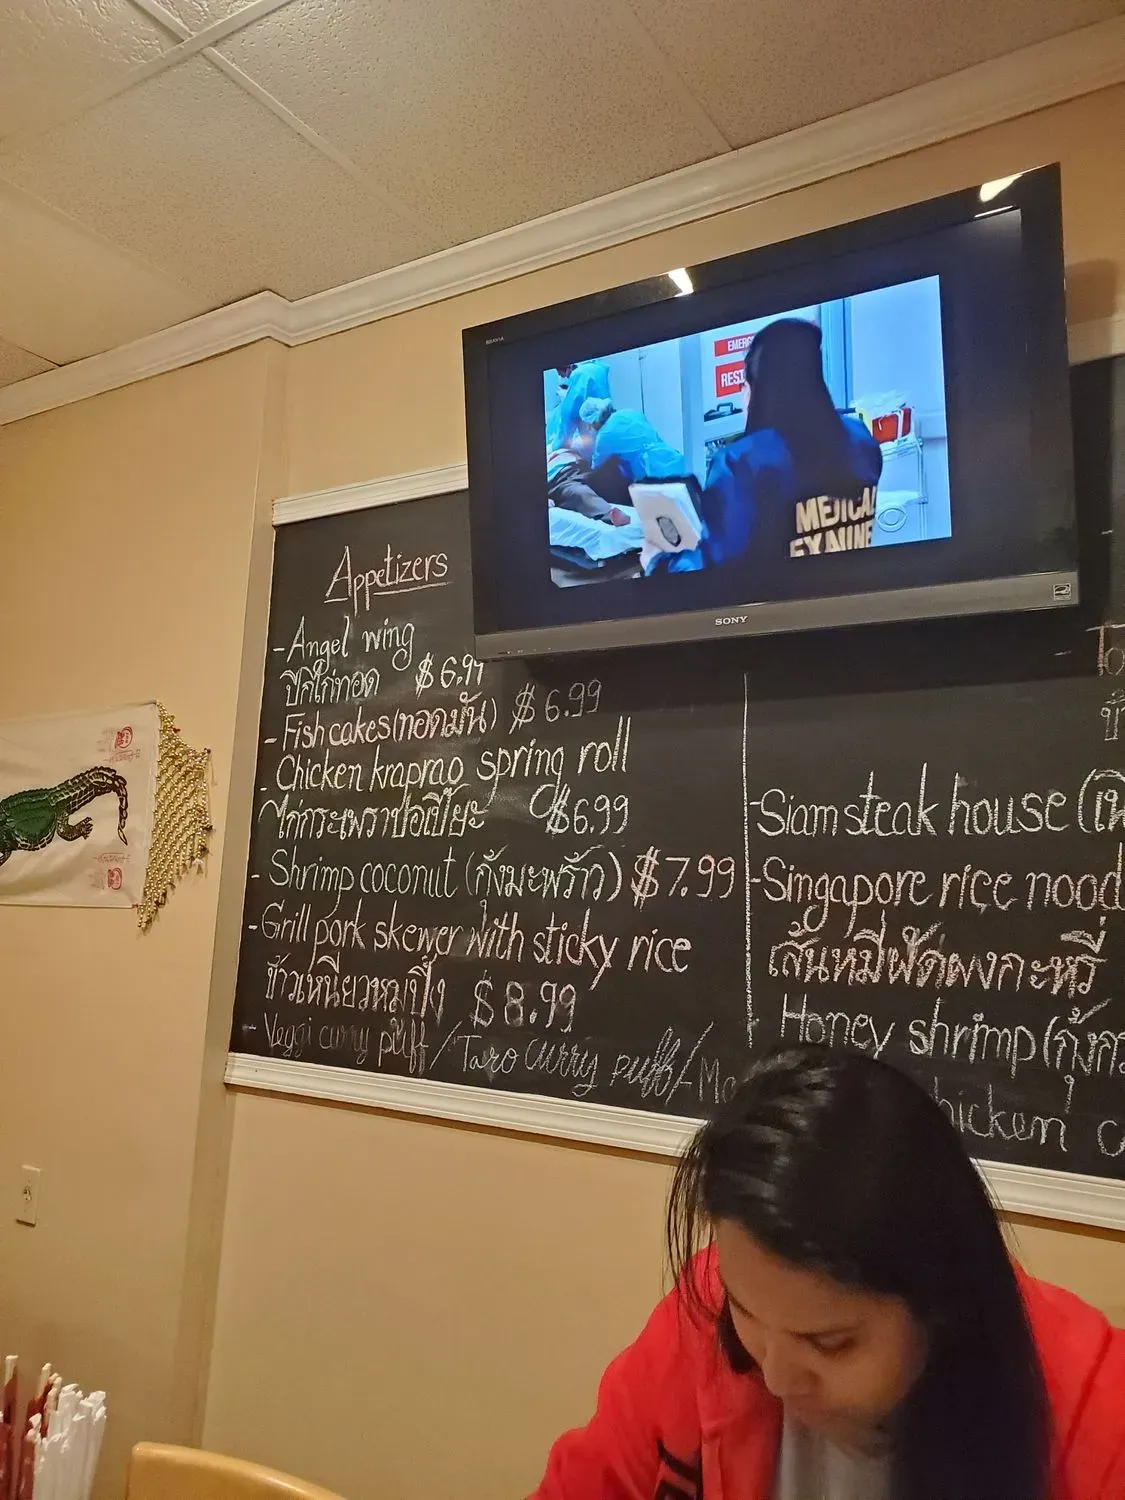 BRAVIA
MEDICAL
EXAMINE
SONY
Appetizers
- Angel wing
ปีกไก่ทอด $6.99
- Fish cakes (ทอดมัน) $6.99
- Chicken kraprao spring roll
ไก่กระเพราปอเปี๊ยะ $6.99
- Shrimp coconut (กุ้งมะพร้าว) $7.99
- Grill pork skewer with sticky rice
ข้าวเหนียวหมูปิ้ง $8.99
- Veggi curry puff / Taro curry puff /
- Siam steak house (
- Singapore rice
เส้นหมี่ผัดผงกะหรี่
Honey shrimp (